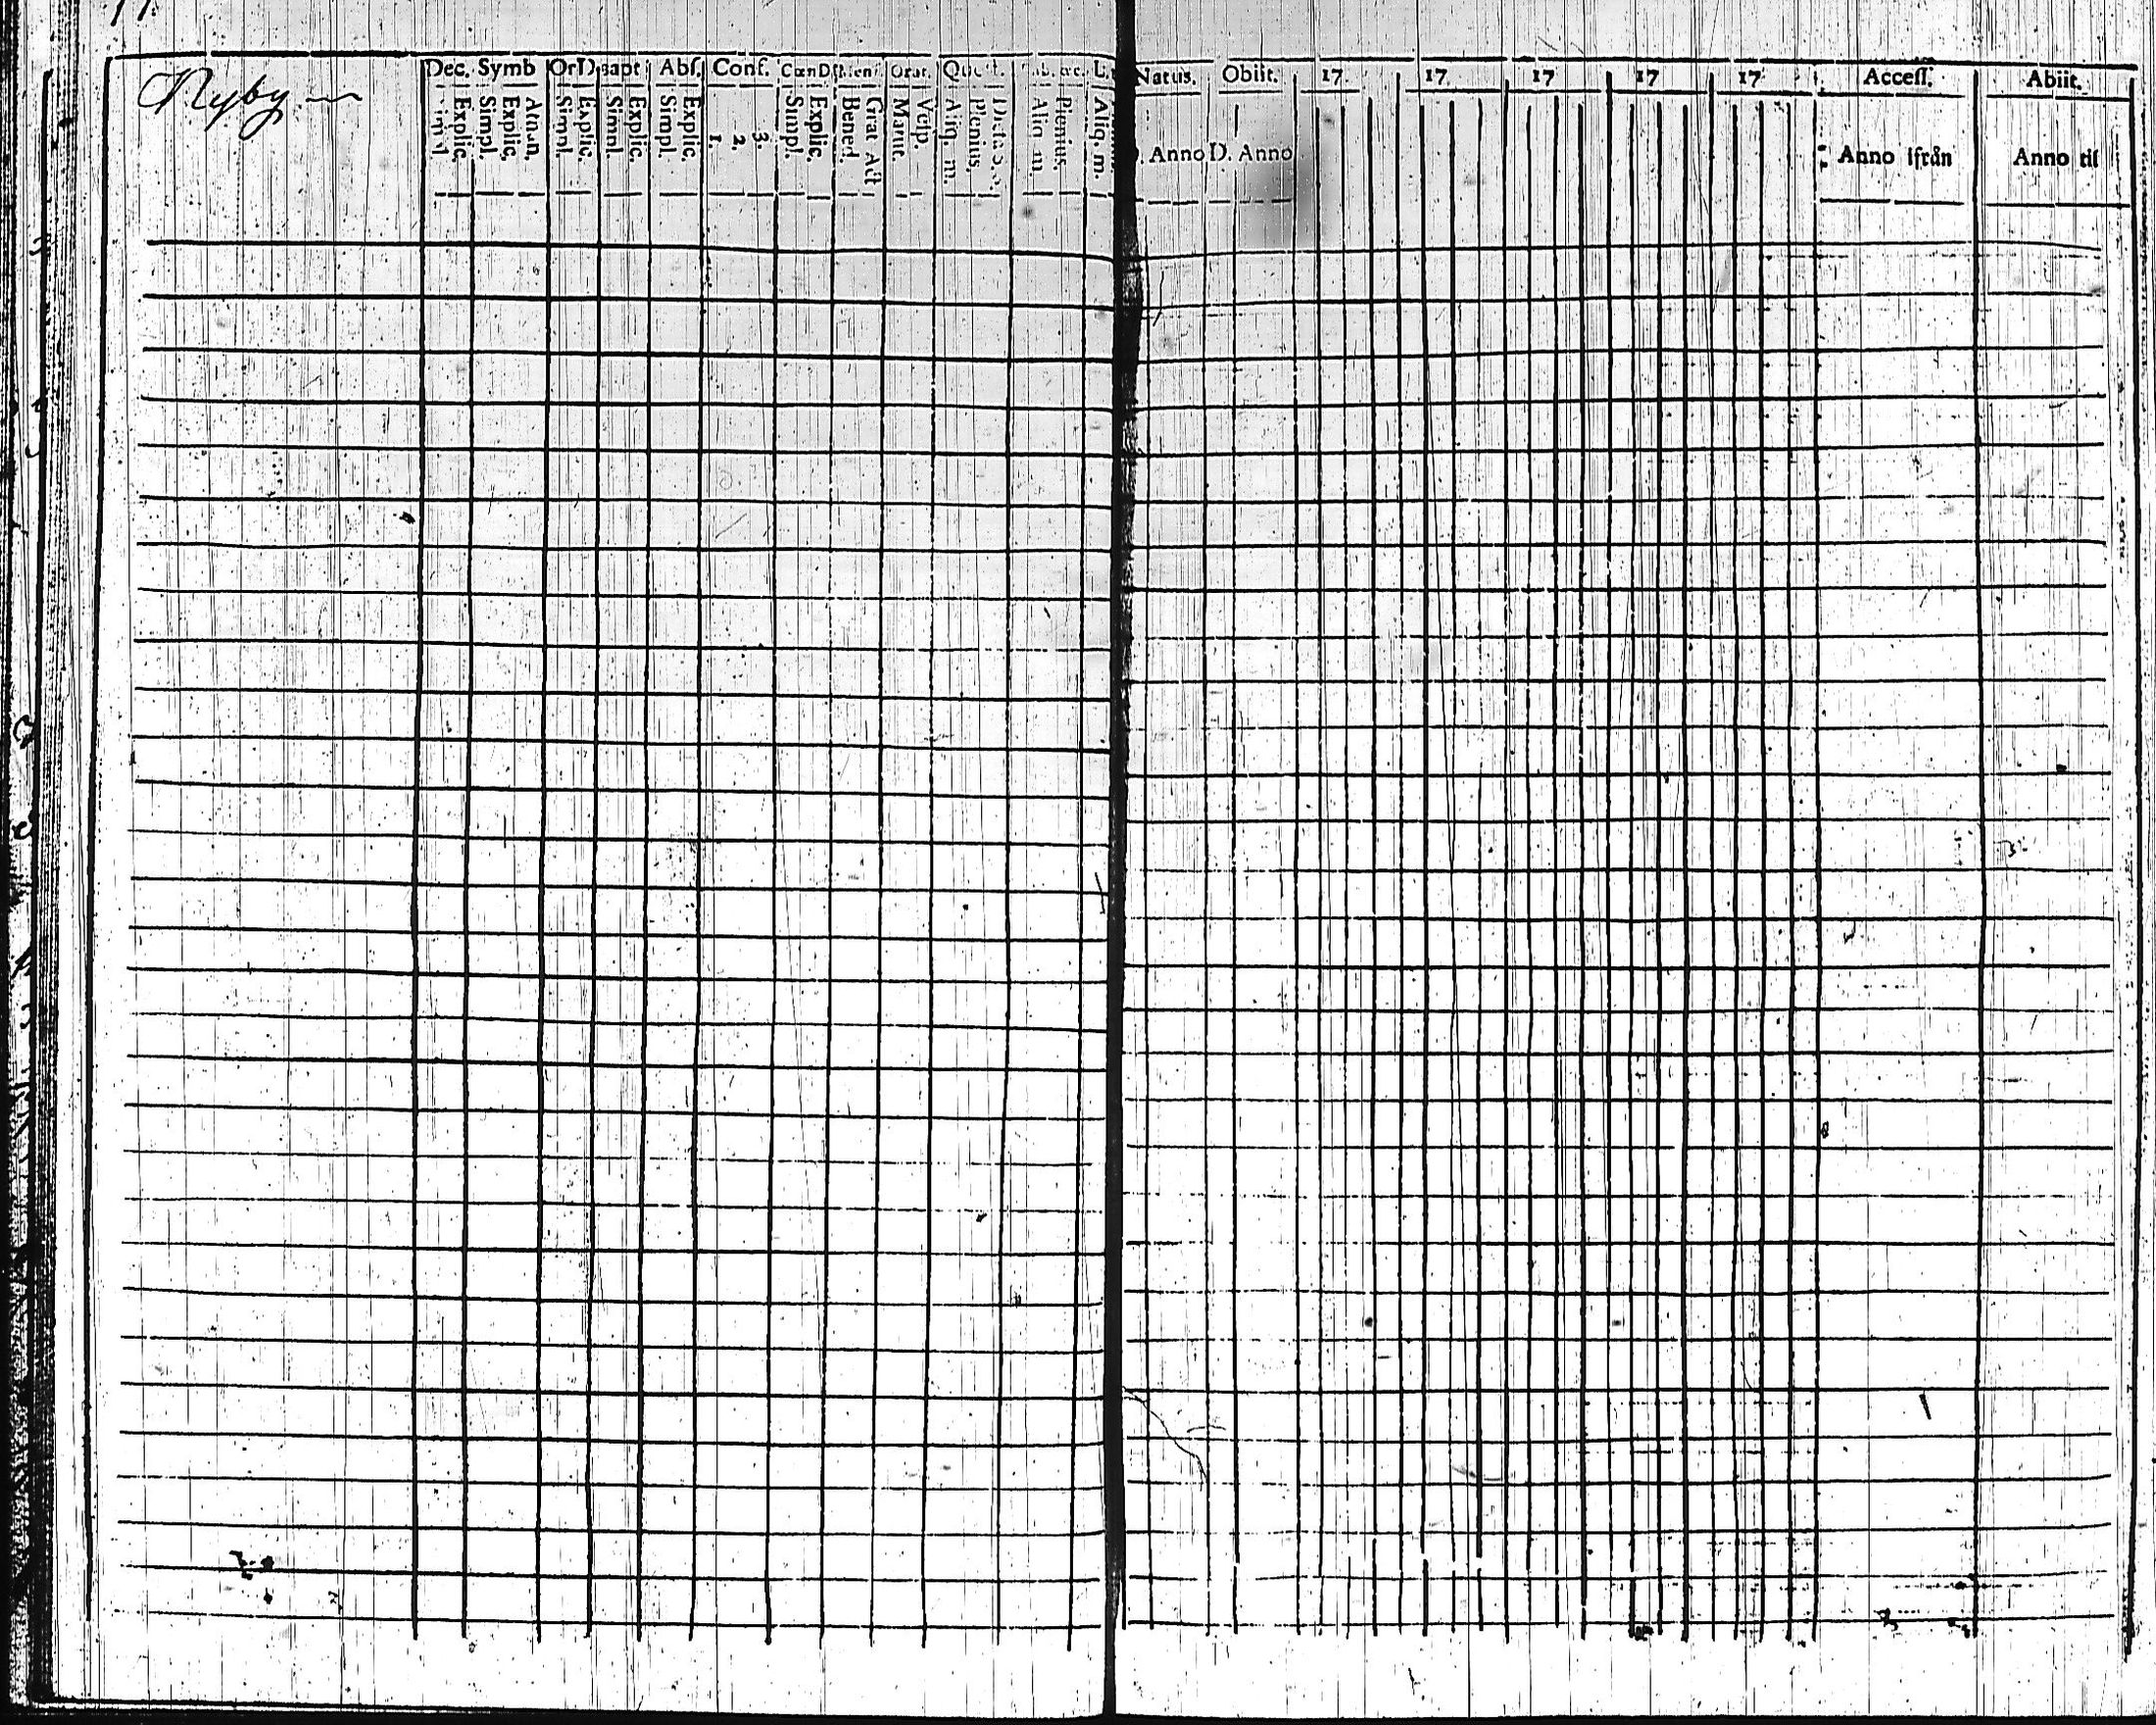 Nyby
Dec. Symb OrD Bapt. Abs. Conf. CœnD Orat.
Explic. Simpl. Explic. Athan. Simpl. Explic. Simpl. Explic. Simpl. Explic. 1. 2. 3. Simpl. Explic. Bened. Grat Act Matut. Vesp. Aliq. m. Plenius. Aliq. m. Plenius. Aliq. m.
Natus. Obiit. 17 17 17 17 17 Access. Abiit.
D. Anno D. Anno Anno ifrån Anno til